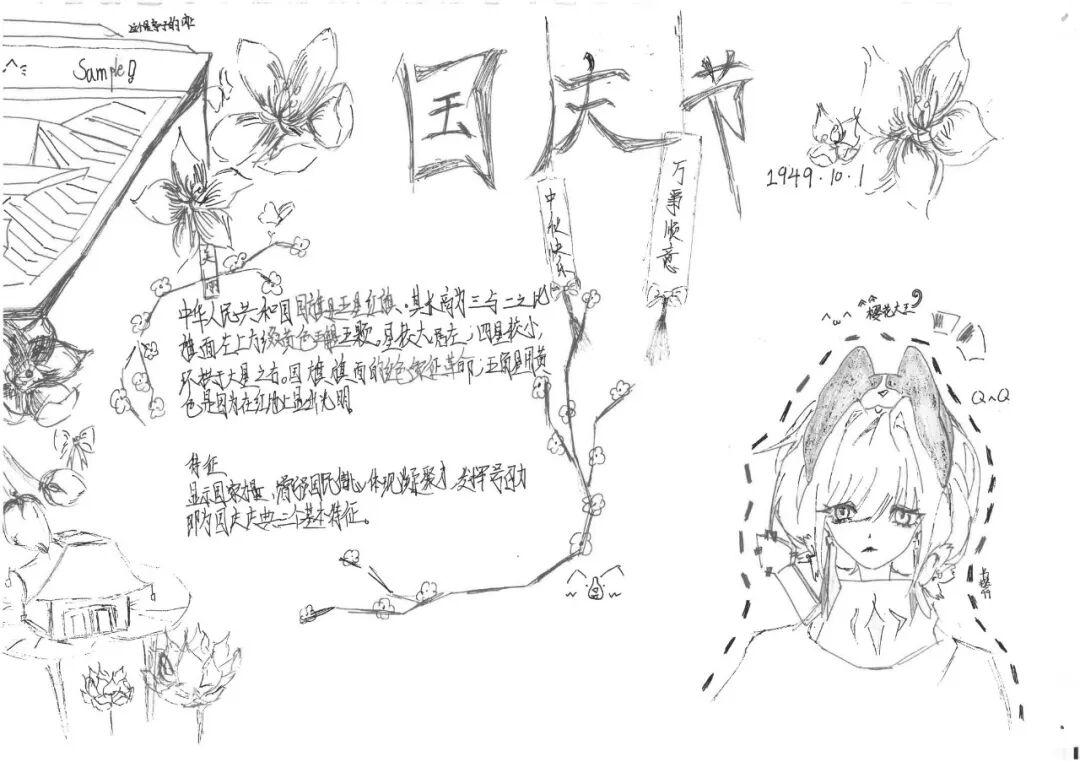 Sample!
国庆节
1949.10.1
中秋快乐
万事顺意
中华人民共和国国旗是五星红旗,其长高为三与二之比
旗面左上方缀黄色五颗。一星较大居左;四星较小,
环拱于大星之右。国旗旗面的红色象征革命;五角星用黄
色是因为在红地上显出光明
樱花大王
Q^Q
特征
显示国家,增强国民信心,体现凝聚力,发挥号召力
即为国庆庆典三个基本特征。